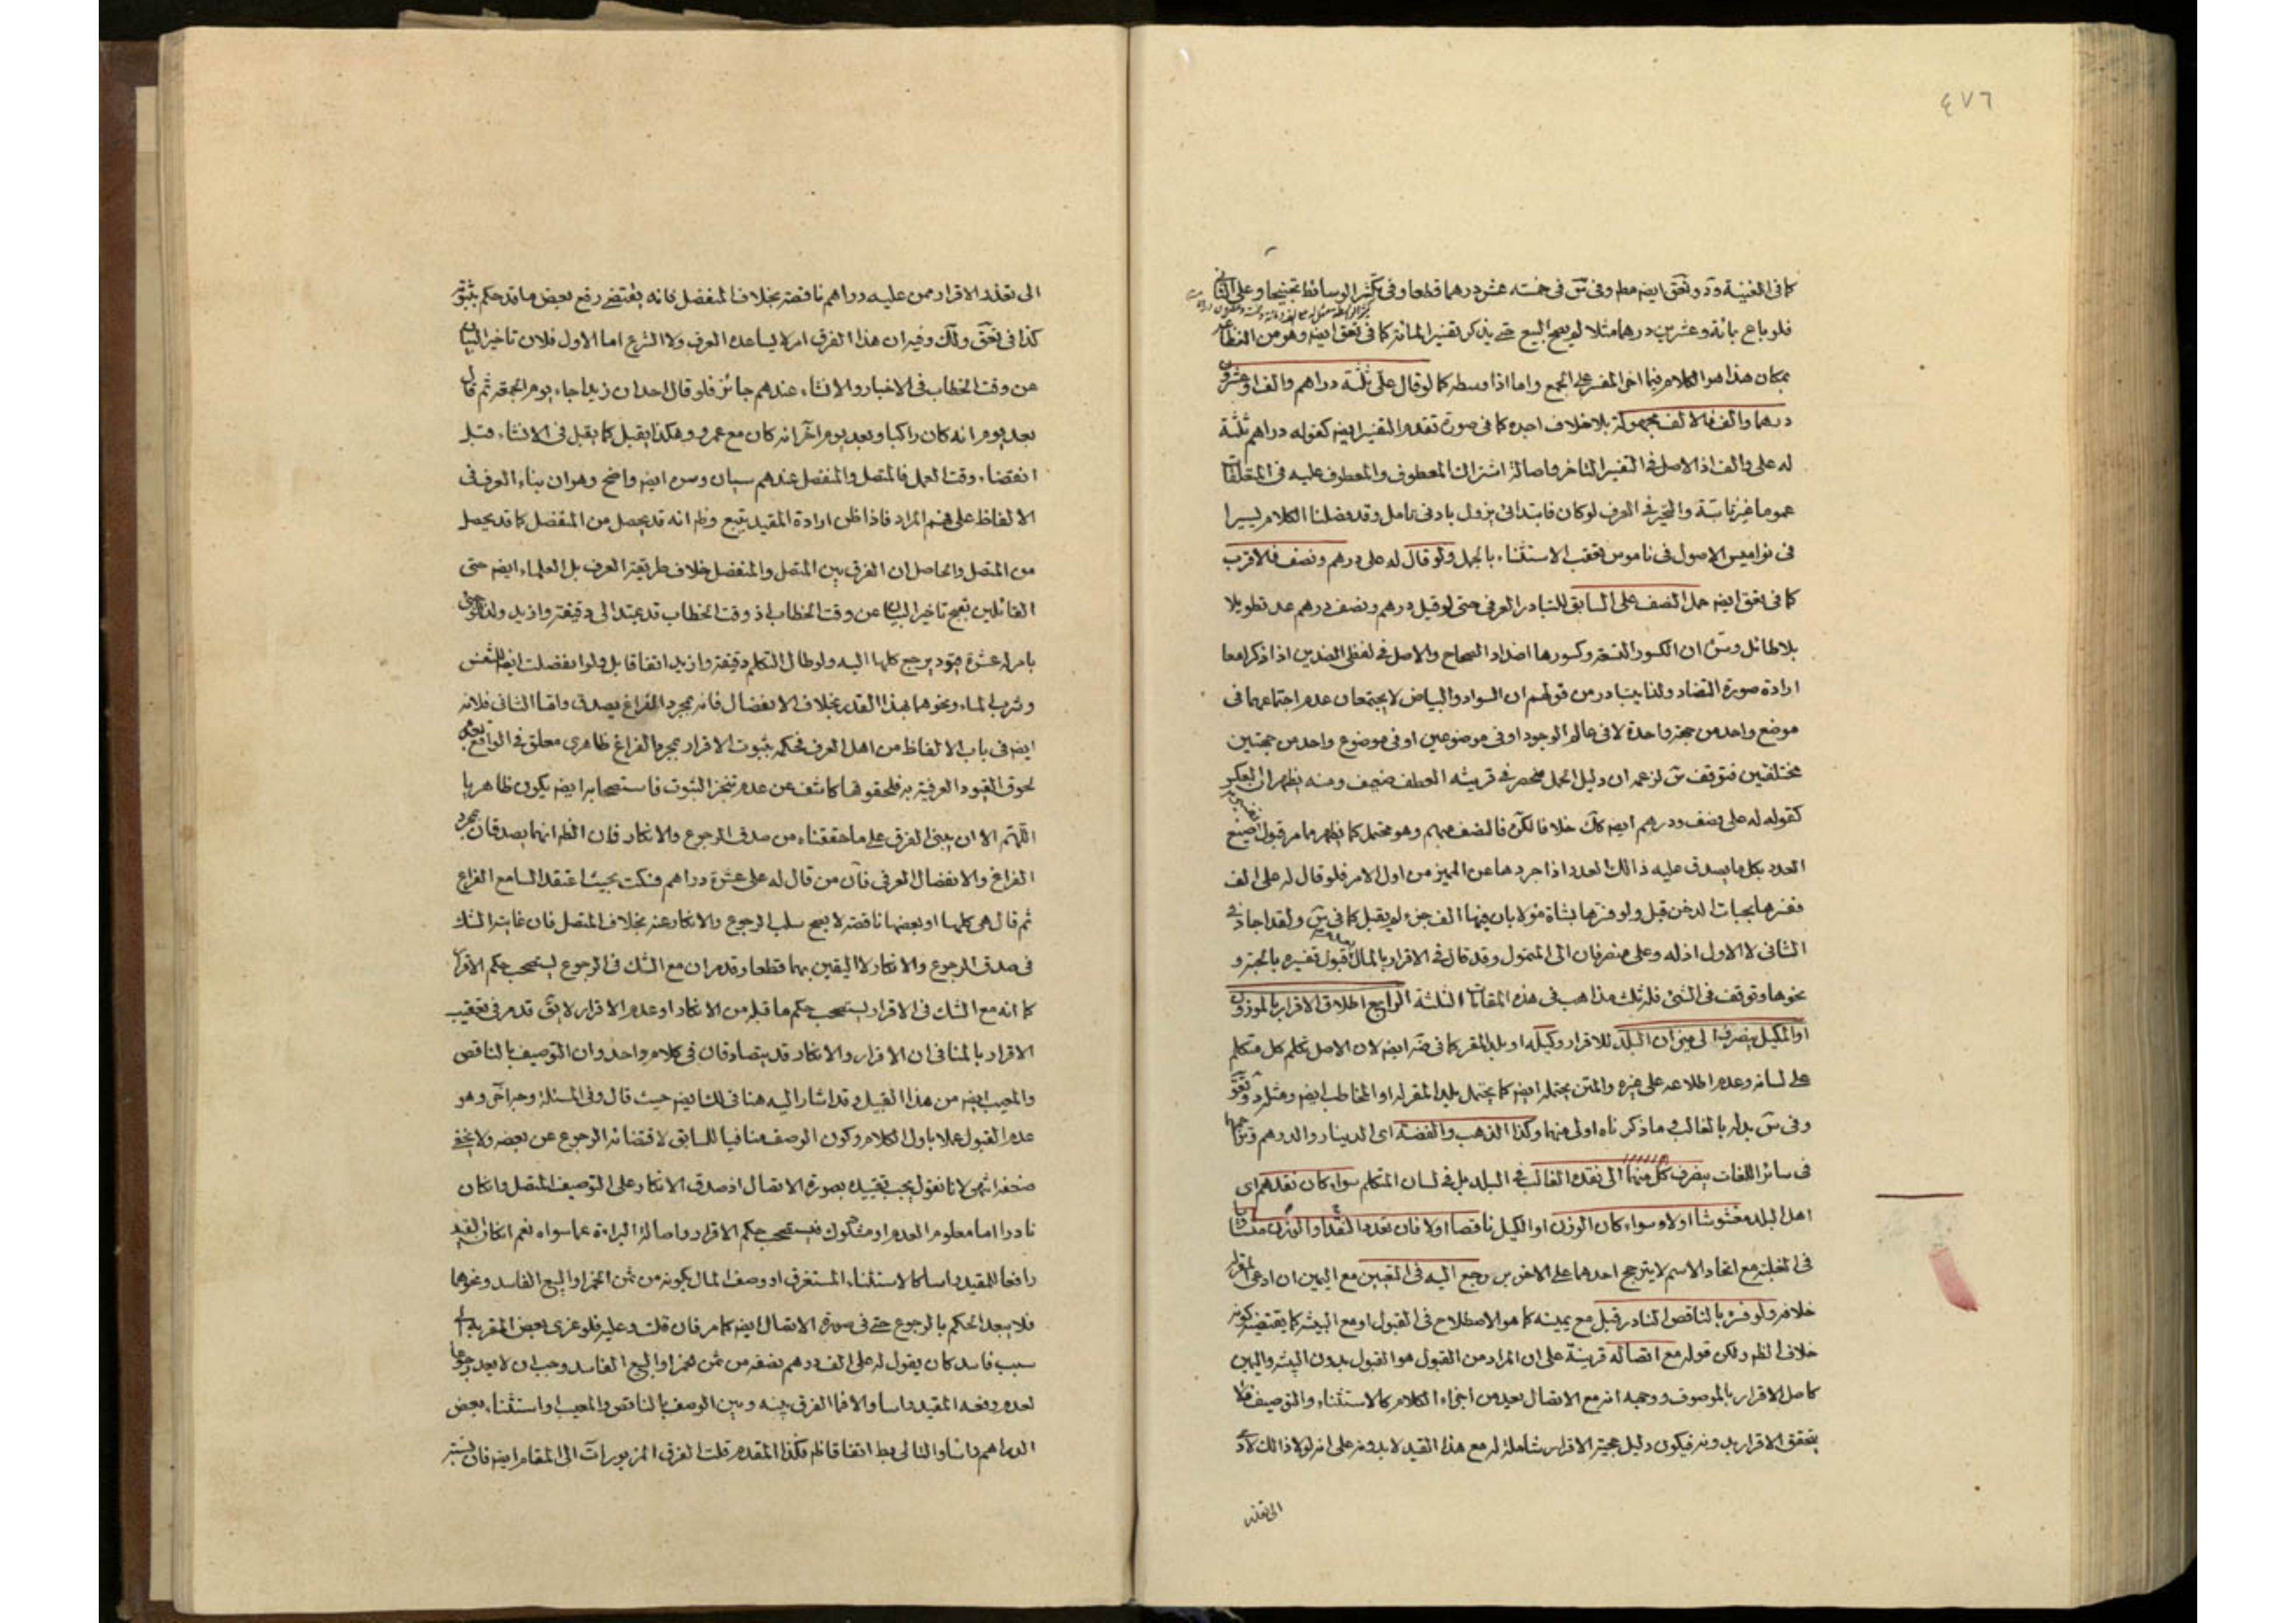 ٤٧٦
كما في الغنية ود وتعق ايضه مطم وفي س في خمسة عشر درهما قطعا وفي تكثر الوسائط تجنيحا وعلى الثاني
فلو باع بمائة وعشرين درهما مثلا لم يصح البيع حتى يذكر تفسير المائة كما في تعق ايضه وهو من الفظاعة
بمكان هذا هو الكلام فيما اخر المفسر على الجمع واما اذا وسطه كما لو قال علي ثلثة دراهم والف او عشرون
درهما والف فالالف مجهولة بلا خلاف اجده كما في صورة تقدم المفسر ايضه كقوله دراهم ثلثة
له علي والف اذ الاصل في التفسير التاخر واصالة اشتراك المعطوف والمعطوف عليه في المتعلقات
عموما غير ثابتة والتحير في العرف لو كان فابتدائي يزول بادنى تامل وقد فصلنا الكلام يسيرا
في نواميس الاصول في ناموس تعقب الاستثناء بالجمل ولو قال له علي درهم ونصف فالاقرب
كما في تعق ايضه حمل النصف على السابق للتبادر العرفي حتى لو قيل درهم ونصف درهم عد تطويلا
بلا طائل وس ان الكسور التسعة وكسورها اضداد الصحاح والاصل في لفظ الضدين اذا ذكرا معا
ارادة صورة التضاد ولذا يتبادر من قولهم ان السواد والبياض لا يجتمعان عدم اجتماعهما في
موضع واحد من جهة واحدة لا في عالم الوجود او في موضوعين او في موضوع واحد من جهتين
مختلفتين فتوقف س لزعمه ان دليل الحمل منحصر في قرينة العطف ضعيف ومنه يظهر ان العكس
كقوله له علي نصف ودرهم ايضه كك خلافا لكره فالنصف مبهم وهو محتمل كما يظهر مما مر قبول
العدد بكل ما يصدق عليه ذالك العدد اذا جردها عن المميز من اول الامر فلو قال له علي الف
ففسرها بحبات الدخن قبل ولو فسرها بشاة مؤلا بان فيها الف جزء لم يقبل كما في س ولقد اجاد في
الثاني لا الاول اذ له وعلي منصرفان الى المتمول وقد قال في الاقرار بالمال قبول تفسيره بالحبة و
نحوها وتوقف في الشئ فله تلك مذاهب في هذه المقامات الثلثة الرابع اطلاق الاقرار بالموزون
او المكيل ينصرف الى ميزان البلد للاقرار وكيله او بلد المقر كما في ضه ايضه لان الاصل تكلم كل متكلم
على لسانه وعدم اطلاعه على غيره والمتن يحتمله ايضه كما يحتمل بلد المقر له او المخاطب ايضه ومثله د وتعق
وفي س بدله بالغالب وما ذكرناه اولى منهما وكذا الذهب والفضة اي الدينار والدرهم
في سائر اللغات ينصرف كل منهما الى نقده الغالب في البلد بل في لسان المتكلم سواء كان نقدهم اي
اهل البلد مغشوشا اولا وسواء كان الوزن او الكيل ناقصا اولا فان تعدد النقد او الوزن متساويا
في الغلبة مع اتحاد الاسم لا يترجح احدهما على الاخر بس رجع اليه في التعيين مع اليمين ان ادعى المقر له
خلافه ولو فسره بالناقص النادر قبل مع يمينه كما هو الاصطلاح في القبول او مع البينة كما يقتضيه كونه
خلاف الظم ولكن قوله مع اتصاله قرينة على ان المراد من القبول هو القبول بدون البينة واليمين
كاصل الاقرار بالموصوف ووجهه انه مع الاتصال يعد من اجزاء الكلام كالاستثناء والتوصيف فلا
يتحقق الاقرار بدونه فيكون دليل حجية الاقرار شاملة له مع هذا القيد لا بدونه على انه لولا ذالك لادى
الى تعذر
الى تعذر الاقرار ممن عليه دراهم ناقصة بخلاف المنفصل فانه يقتضي رفع بعض ما قد حكم بثبوته
كذا في تعق ولك وفيه ان هذا الفرق امر لا يساعده العرف ولا الشرع اما الاول فلان تاخير البيان
عن وقت الخطاب في الاخبار والانشاء عندهم جائز فلو قال احد ان زيدا جاء يوم الجمعة ثم قال
بعد يوم انه كان راكبا وبعد يوم آخر انه كان مع عمرو وهكذا يقبل كما يقبل في الانشاء قبل
انقضاء وقت العمل فالمتصل والمنفصل عندهم سيان وسره ايضه واضح وهو ان بناء العرف في
الالفاظ على فهم المراد فاذا ظن ارادة المقيد يتبع وظم انه قد يحصل من المنفصل كما قد يحصل
من المتصل والحاصل ان الفرق بين المتصل والمنفصل خلاف طريقة العرف بل العلماء ايضه حتى
القائلين بقبح تاخير البيان عن وقت الخطاب اذ وقت الخطاب قد يمتد الى دقيقة وازيد ولذا لو اتى
بامر له عشرة قيود يرجع كلها اليه ولو طال التكلم دقيقة وازيد اتفاقا بل ولو انفصلت ايضه للتنفس
وشرب الماء ونحوهما بهذا القدر بخلاف الانفصال فانه بمجرد الفراغ يصدق واما الثاني فلانه
ايضه في باب الالفاظ من اهل العرف فحكمه بثبوت الاقرار بمجرد الفراغ ظاهري معلق في الواقع بعدم
لحوق القيود العرفية به فلحوقها كاشف عن عدم تنجز الثبوت فاستصحابه ايضه يكون ظاهريا
اللهم الا ان يبنى الفرق على ما حققناه من صدق الرجوع والانكار فان الظم انهما يصدقان بمجرد
الفراغ والانفصال العرفي فان من قال له علي عشرة دراهم فسكت بحيث اعتقد السامع الفراغ
ثم قال هي كلها او بعضها ناقصة لا يصح سلب الرجوع والانكار عنه بخلاف المتصل فان غايته الشك
في صدق الرجوع والانكار لا اليقين بهما قطعا وقد مر ان مع الشك في الرجوع يستصحب حكم الاقرار
كما انه مع الشك في الاقرار يستصحب حكم ما قبله من الانكار او عدم الاقرار لا يق قد مر في تعقيب
الاقرار بالمنافي ان الاقرار والانكار قد يتصادقان في كلام واحد وان التوصيف بالناقص
والمعيب ايضه من هذا القبيل وقد اشار اليه هنا في لك ايضه حيث قال وفي المسئلة وجه آخر وهو
عدم القبول عملا باول الكلام وكون الوصف منافيا للسابق لاقتضائه الرجوع عن بعضه ولا يخفى
ضعفه انتهى لانا نقول يجب تقييده بصورة الاتصال اذ صدق الانكار على التوصيف المتصل وان كان
نادرا اما معلوم العدم او مشكوك فيستصحب حكم الاقرار واصالة البراءة عما سواه نعم ان كان القيد
رافعا للمقيد راسا كالاستثناء المستغرق او وصف المال بكونه من ثمن الخمر او البيع الفاسد ونحوهما
فلا يبعد الحكم بالرجوع حتى في صورة الاتصال ايضه كما مر فان قلت وعليه فلو عزى بعض المقر به الى
سبب فاسد كان يقول له علي الف درهم نصفه من ثمن خمر او البيع الفاسد وجب ان لا يعد رجوعا
لعدم رفعه المقيد راسا والا فما الفرق بينه وبين الوصف بالناقص والمعيب واستثناء بعض
الدراهم راسا والتالي بط اتفاقا ظم فكذا المقدم قلت الفرق المزبور آت الى المقام ايضه فان